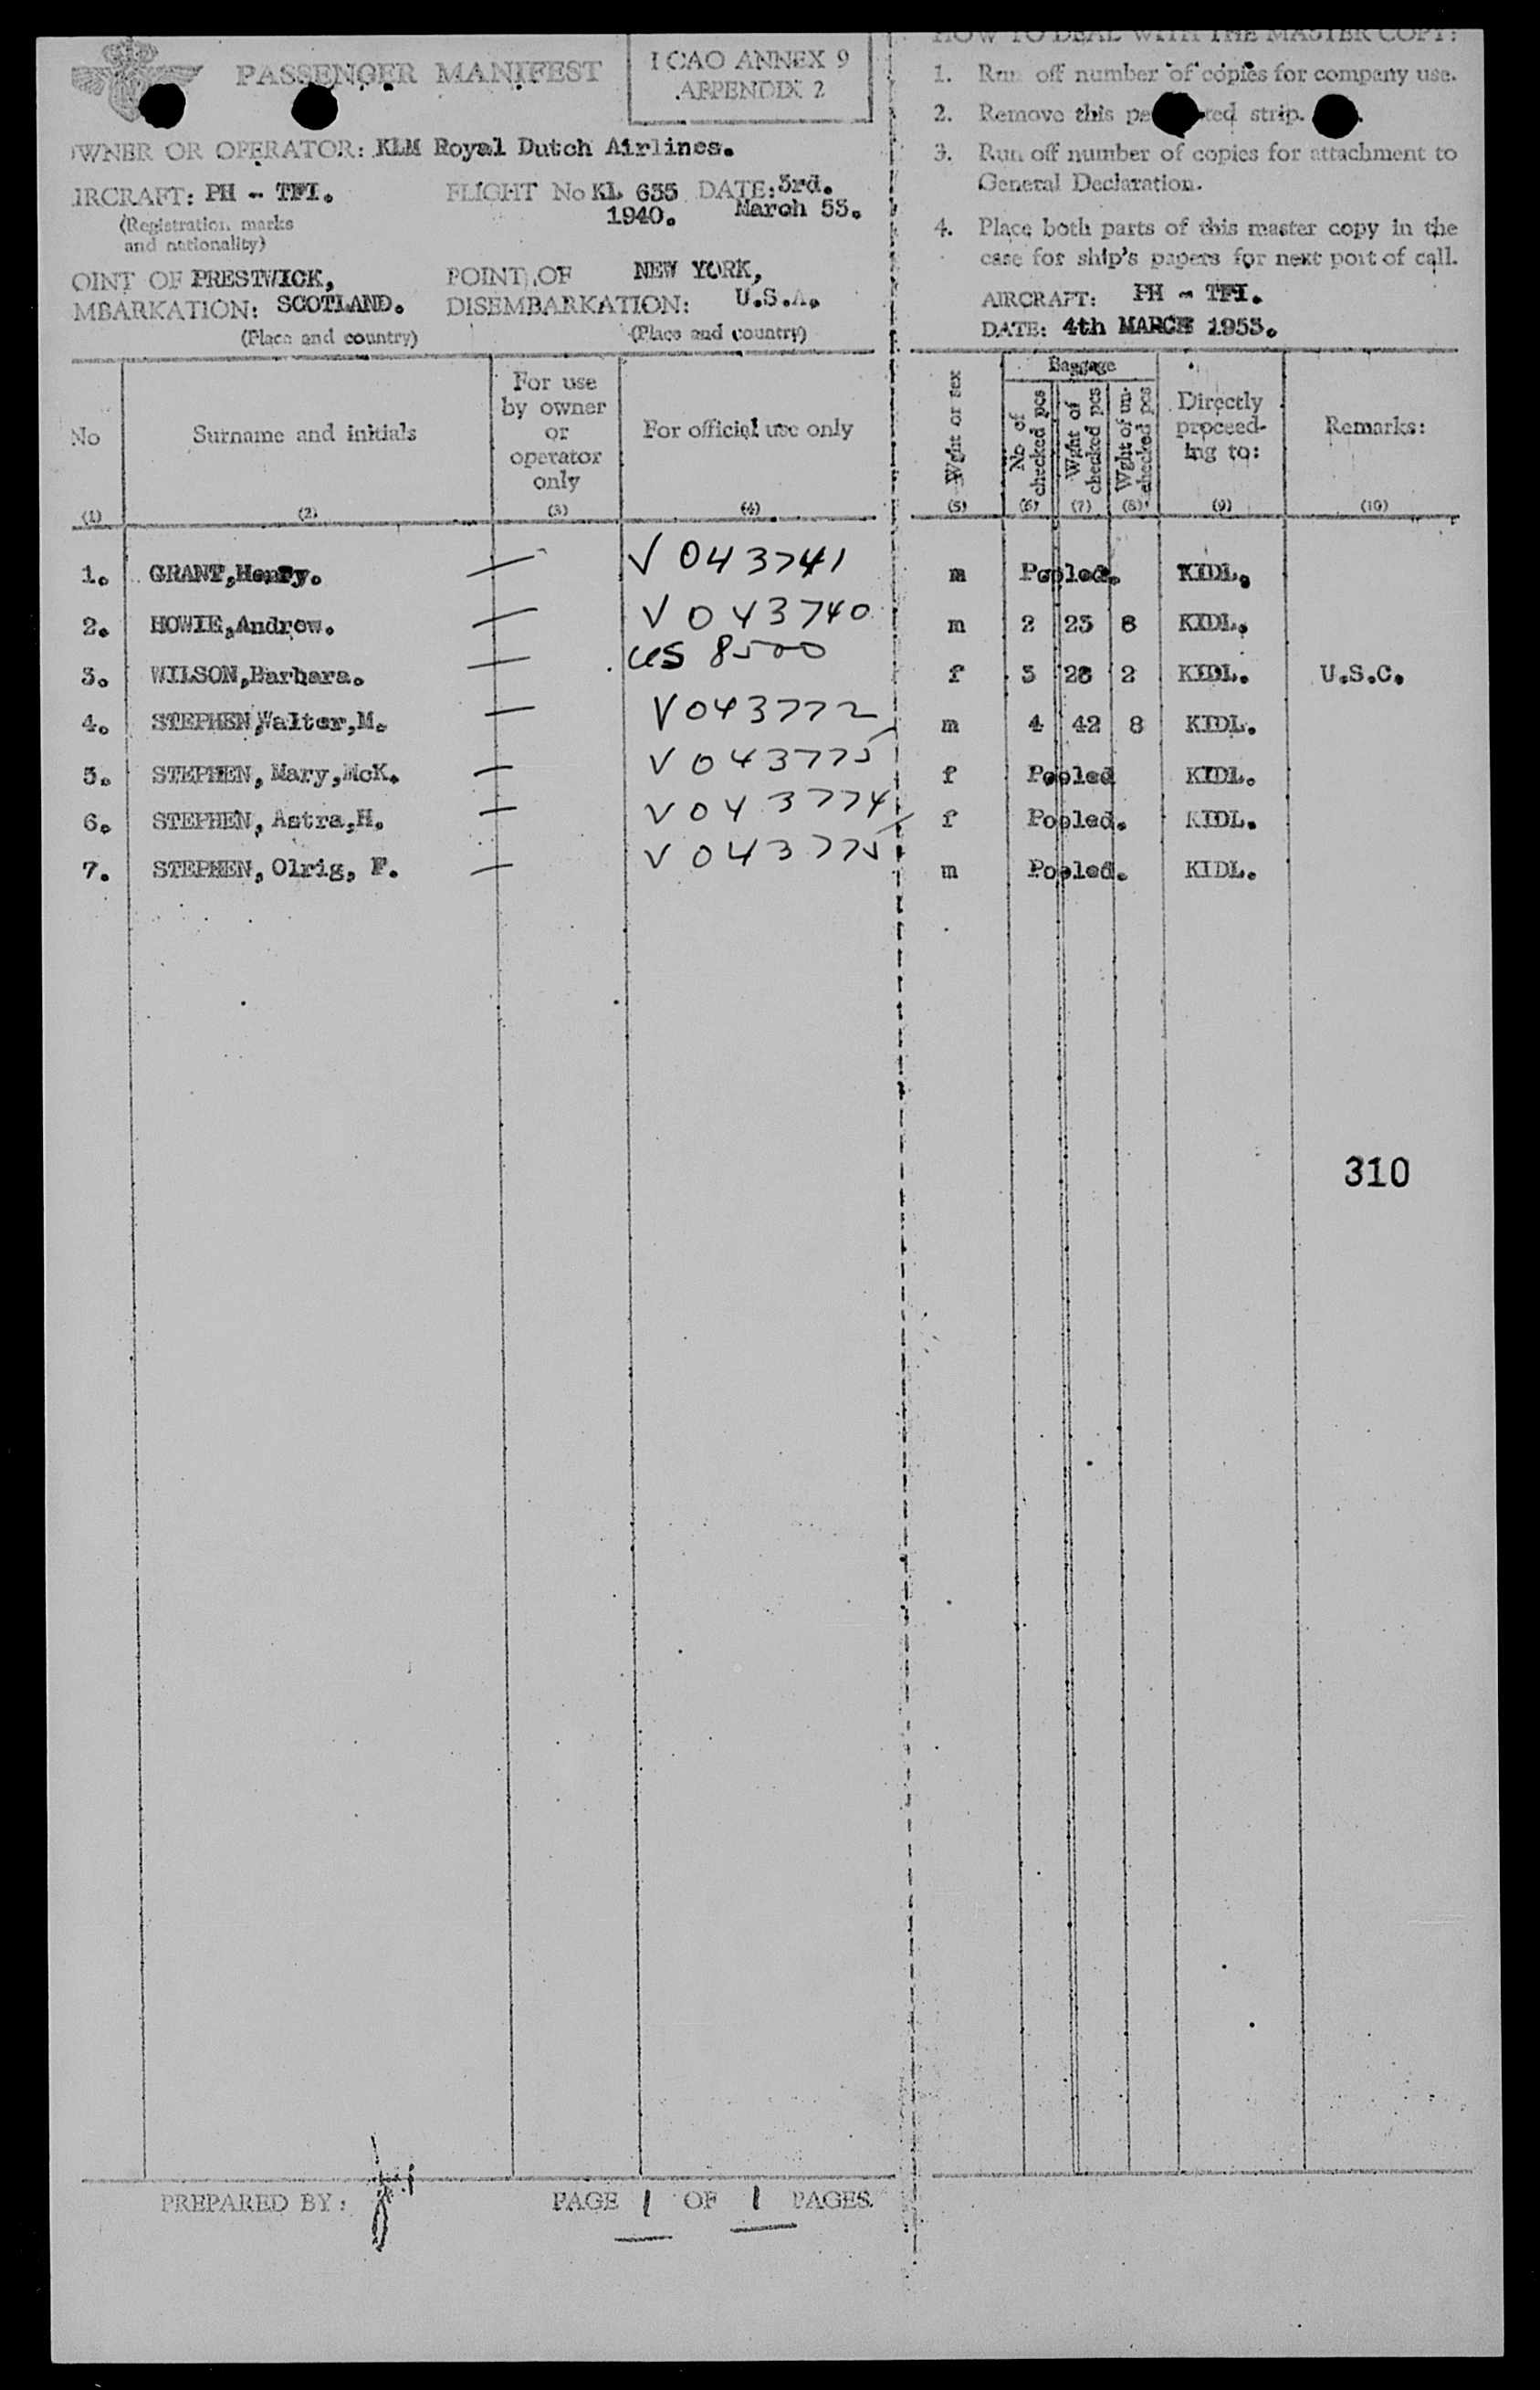 PASSENGER MANIFEST
ICAO ANNEX 9
APPENDIX 2
OWNER OR OPERATOR: KLM Royal Dutch Airlines.
IRCRAFT: PH - TFI.
(Registration marks
and nationality)
FLIGHT No KL 635 DATE: 3rd.
1940. March 53.
OINT OF PRESTWICK,
MBARKATION: SCOTLAND.
(Place and country)
POINT OF NEW YORK,
DISEMBARKATION: U.S.A.
(Place and country)
HOW TO DEAL WITH THE MASTER COPY:
1. Run off number of copies for company use.
2. Remove this strip.
3. Run off number of copies for attachment to
General Declaration.
4. Place both parts of this master copy in the
case for ship's papers for next port of call.
AIRCRAFT: PH - TFI.
DATE: 4th MARCH 1953.
No Surname and initials For use by owner or operator only For official use only Wght or sex Baggage No of checked pcs Wght of checked pcs Wght of un-checked pcs Directly proceed-ing to: Remarks:
(1) (2) (3) (4) (5) (6) (7) (8) (9) (10)
1. GRANT, Henry. — V 043741 m Pooled. KIDL.
2. HOWIE, Andrew. — V 043740 m 2 23 8 KIDL.
3. WILSON, Barbara. — US 8500 f 3 28 2 KIDL. U.S.C.
4. STEPHEN, Walter, M. — V 043772 m 4 42 8 KIDL.
5. STEPHEN, Mary, McK. — V 043775 f Pooled KIDL.
6. STEPHEN, Astra, H. — V 043774 f Pooled. KIDL.
7. STEPHEN, Olrig, F. — V 043775 m Pooled. KIDL.
310
PREPARED BY:
PAGE 1 OF 1 PAGES.